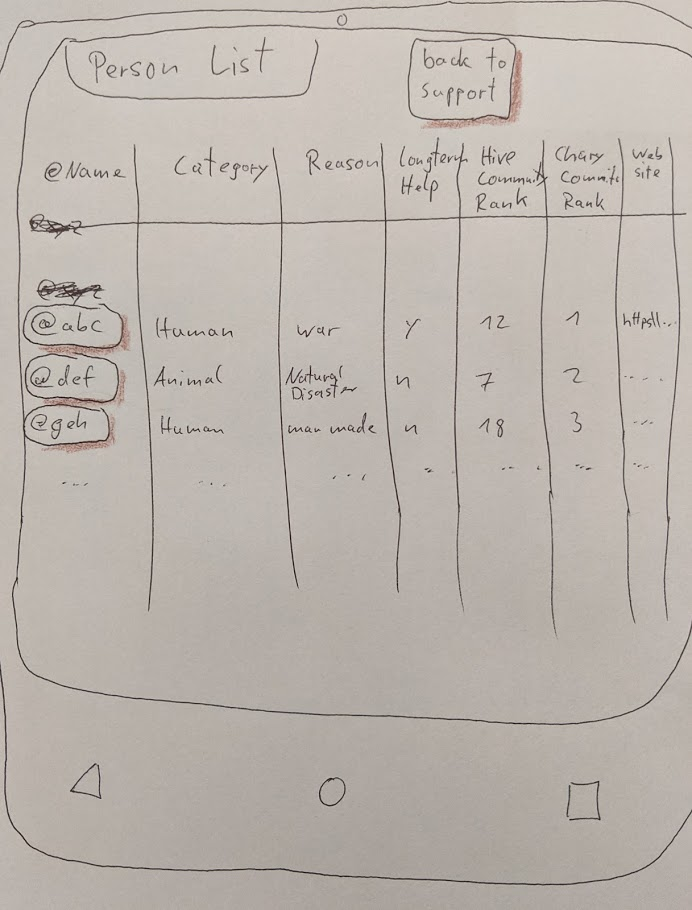 Person List
back to
support
@Name
Category
Reason
Longterm
Help
Hive
Community
Rank
Chary
Community
Rank
Web
site
@xyz
@xyz
@abc
Human
war
y
12
1
https//...
@def
Animal
Natural
Disaster
n
7
2
....
@geh
Human
man made
n
18
3
...
...
...
...
..
...
...
...